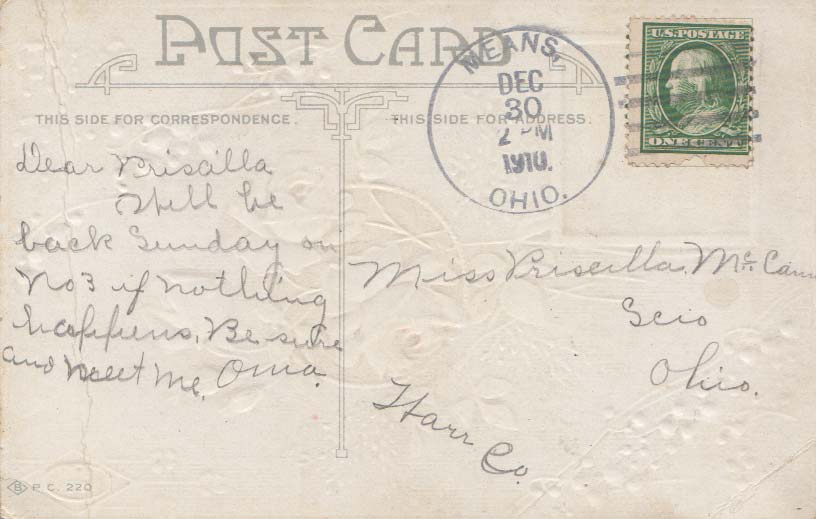 POST CARD
THIS SIDE FOR CORRESPONDENCE.
THIS SIDE FOR ADDRESS.
MEANS,
DEC
30
2 PM
1910.
OHIO.
U.S. POSTAGE
ONE CENT
Dear Priscilla
Will be
back Sunday on
No 3 if nothing
happens. Be sure
and meet me. Oma.
Miss Priscilla McCann
Scio
Ohio.
Harr Co.
B P.C. 220